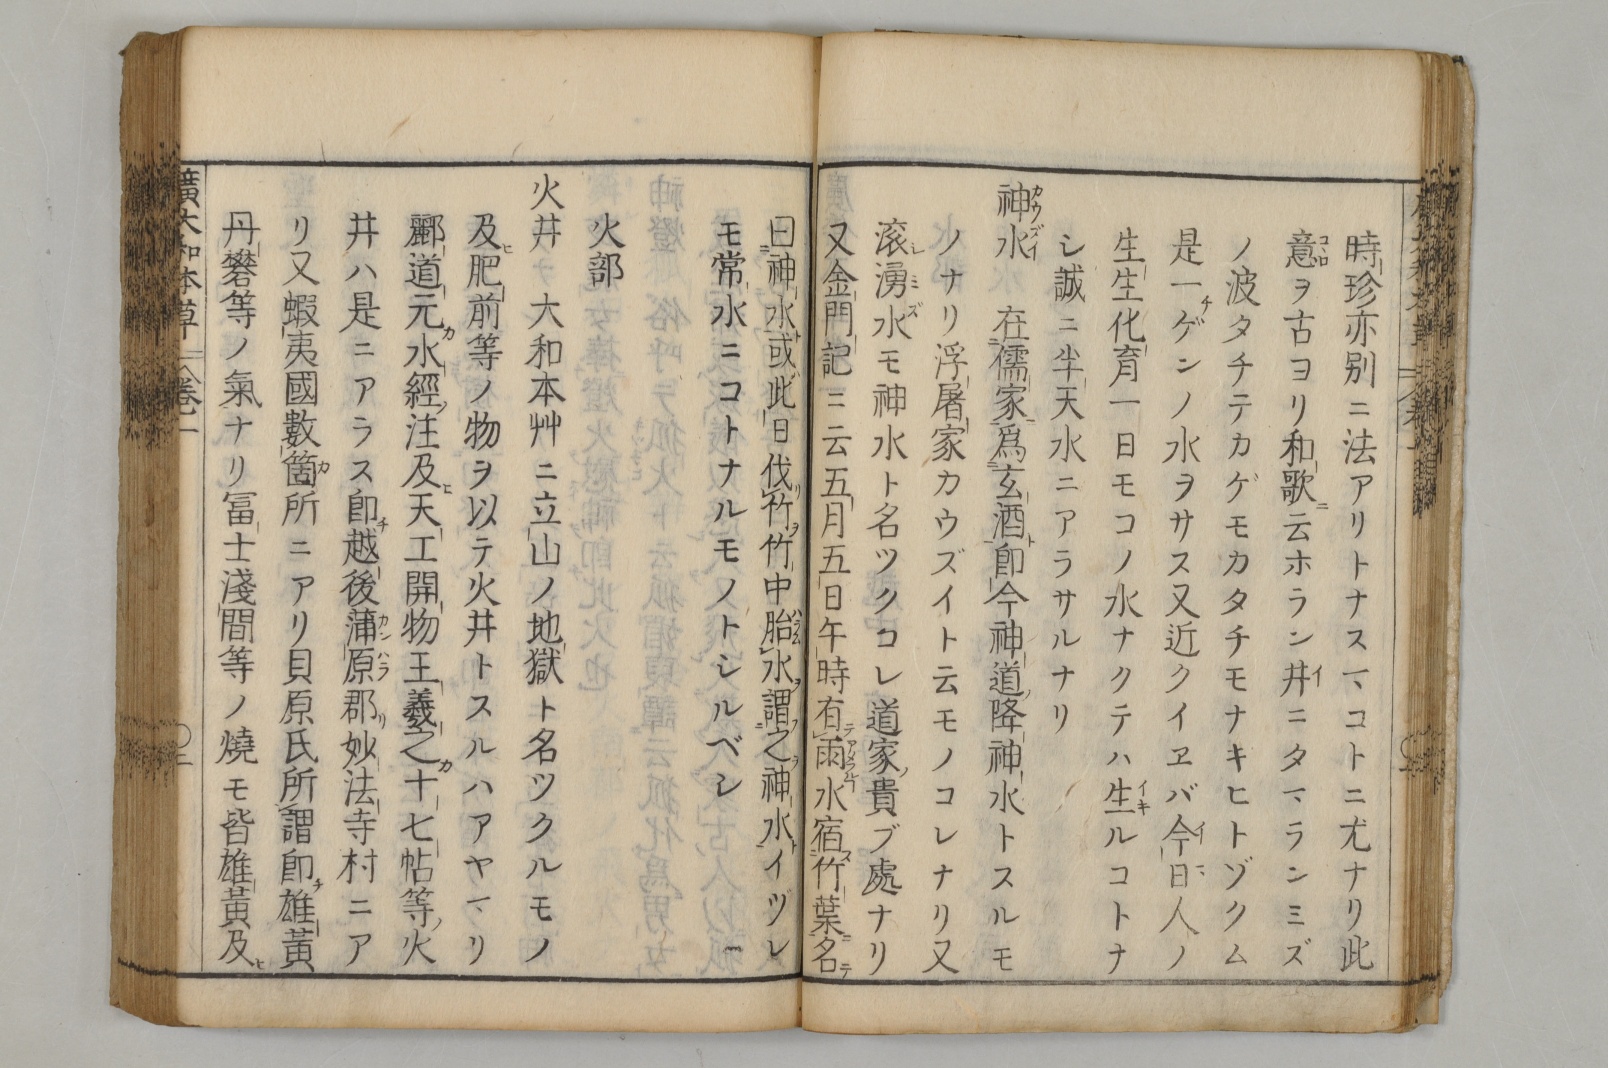 時珍亦別ニ法アリトナスマヽコトニ尤ナリ此
意ヲ古ヨリ和歌ニ云ホラン井ニタマランミズ
ノ波タチテカゲモカタチモナキヒトゾクム
是一ゲンノ水ヲサス又近クイヱバ今日人ノ
生生化育一日モコノ水ナクテハ生ルコトナ
シ誠ニ半天水ニアラサルナリ
神水 在儒家爲玄酒卽今神道降神水トスルモ
ノナリ浮屠家カウズイト云モノコレナリ又
滚湧水モ神水ト名ツクコレ道家貴ブ處ナリ
又金門記ニ云五月五日午時有雨水宿竹葉名
曰神水或此日伐竹竹中胎水謂之神水イヅレ
モ常水ニコトナルモノトシルベシ
火部
火井ナ 大和本艸ニ立山ノ地獄ト名ツクルモノ
及肥前等ノ物ヲ以テ火井トスルハアヤマリ
酈道元水經注及天工開物王羲之十七帖等ノ火
井ハ是ニアラス卽越後蒲原郡妙法寺村ニア
リ又蝦夷國數箇所ニアリ貝原氏所謂卽雄黃
丹礬等ノ氣ナリ冨士淺間等ノ燒モ皆雄黃及
廣大和本草 卷一